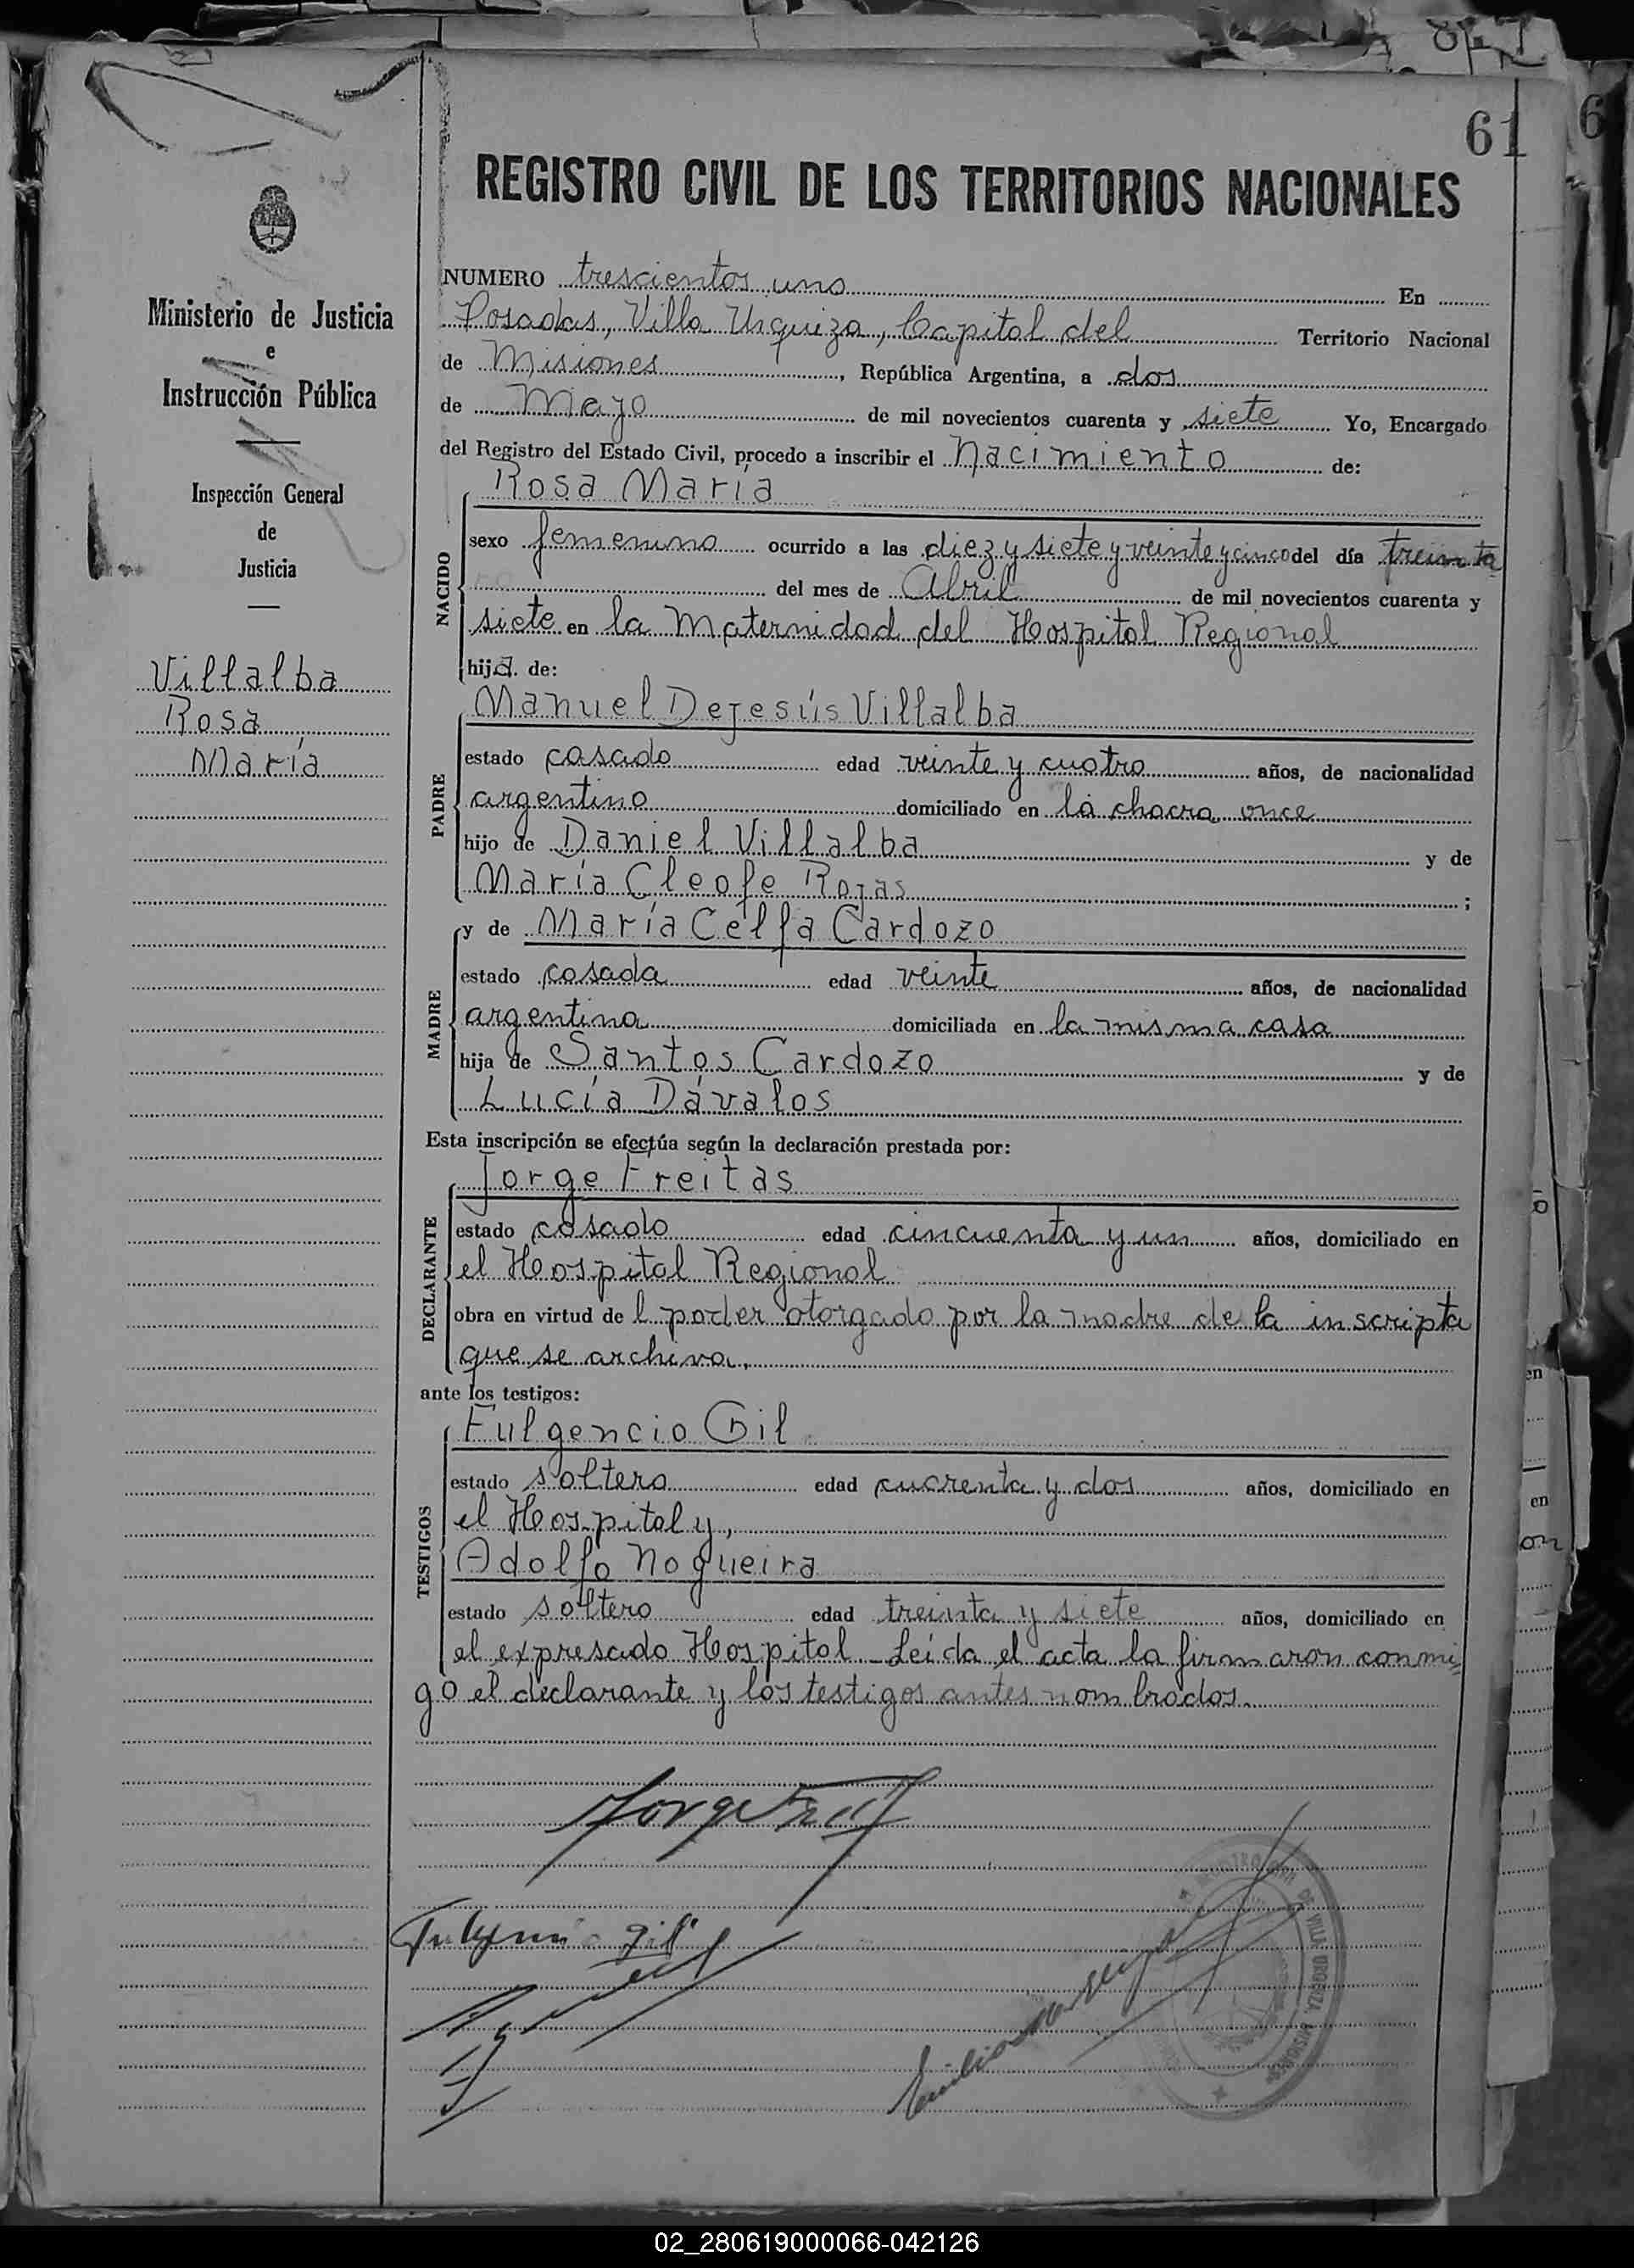 61
REGISTRO CIVIL DE LOS TERRITORIOS NACIONALES
Ministerio de Justicia
e
Instrucción Pública
Inspección General
de
Justicia
Villalba
Rosa
María
NUMERO trescientos uno En
Posadas, Villa Urquiza, Capital del Territorio Nacional
de Misiones, República Argentina, a dos
de Mayo de mil novecientos cuarenta y siete Yo, Encargado
del Registro del Estado Civil, procedo a inscribir el nacimiento de:
Rosa María
NACIDO
sexo femenino ocurrido a las diez y siete y veinte y cinco del día treinta
del mes de Abril de mil novecientos cuarenta y
siete en la Maternidad del Hospital Regional
hija de:
Manuel Dejesús Villalba
PADRE
estado casado edad veinte y cuatro años, de nacionalidad
argentino domiciliado en la chacra once
hijo de Daniel Villalba y de
María Cleofe Rojas ;
y de María Celfa Cardozo
MADRE
estado casada edad veinte años, de nacionalidad
argentina domiciliada en la misma casa
hija de Santos Cardozo y de
Lucía Dávalos
Esta inscripción se efectúa según la declaración prestada por:
Jorge Freitas
DECLARANTE
estado casado edad cincuenta y un años, domiciliado en
el Hospital Regional
obra en virtud de l poder otorgado por la madre de la inscripta
que se archiva.
ante los testigos:
Fulgencio Gil
TESTIGOS
estado soltero edad cuarenta y dos años, domiciliado en
el Hospital y,
Adolfo Nogueira
estado soltero edad treinta y siete años, domiciliado en
el expresado Hospital - Leída el acta la firmaron conmi=
go el declarante y los testigos antes nombrados.
02_280619000066-042126